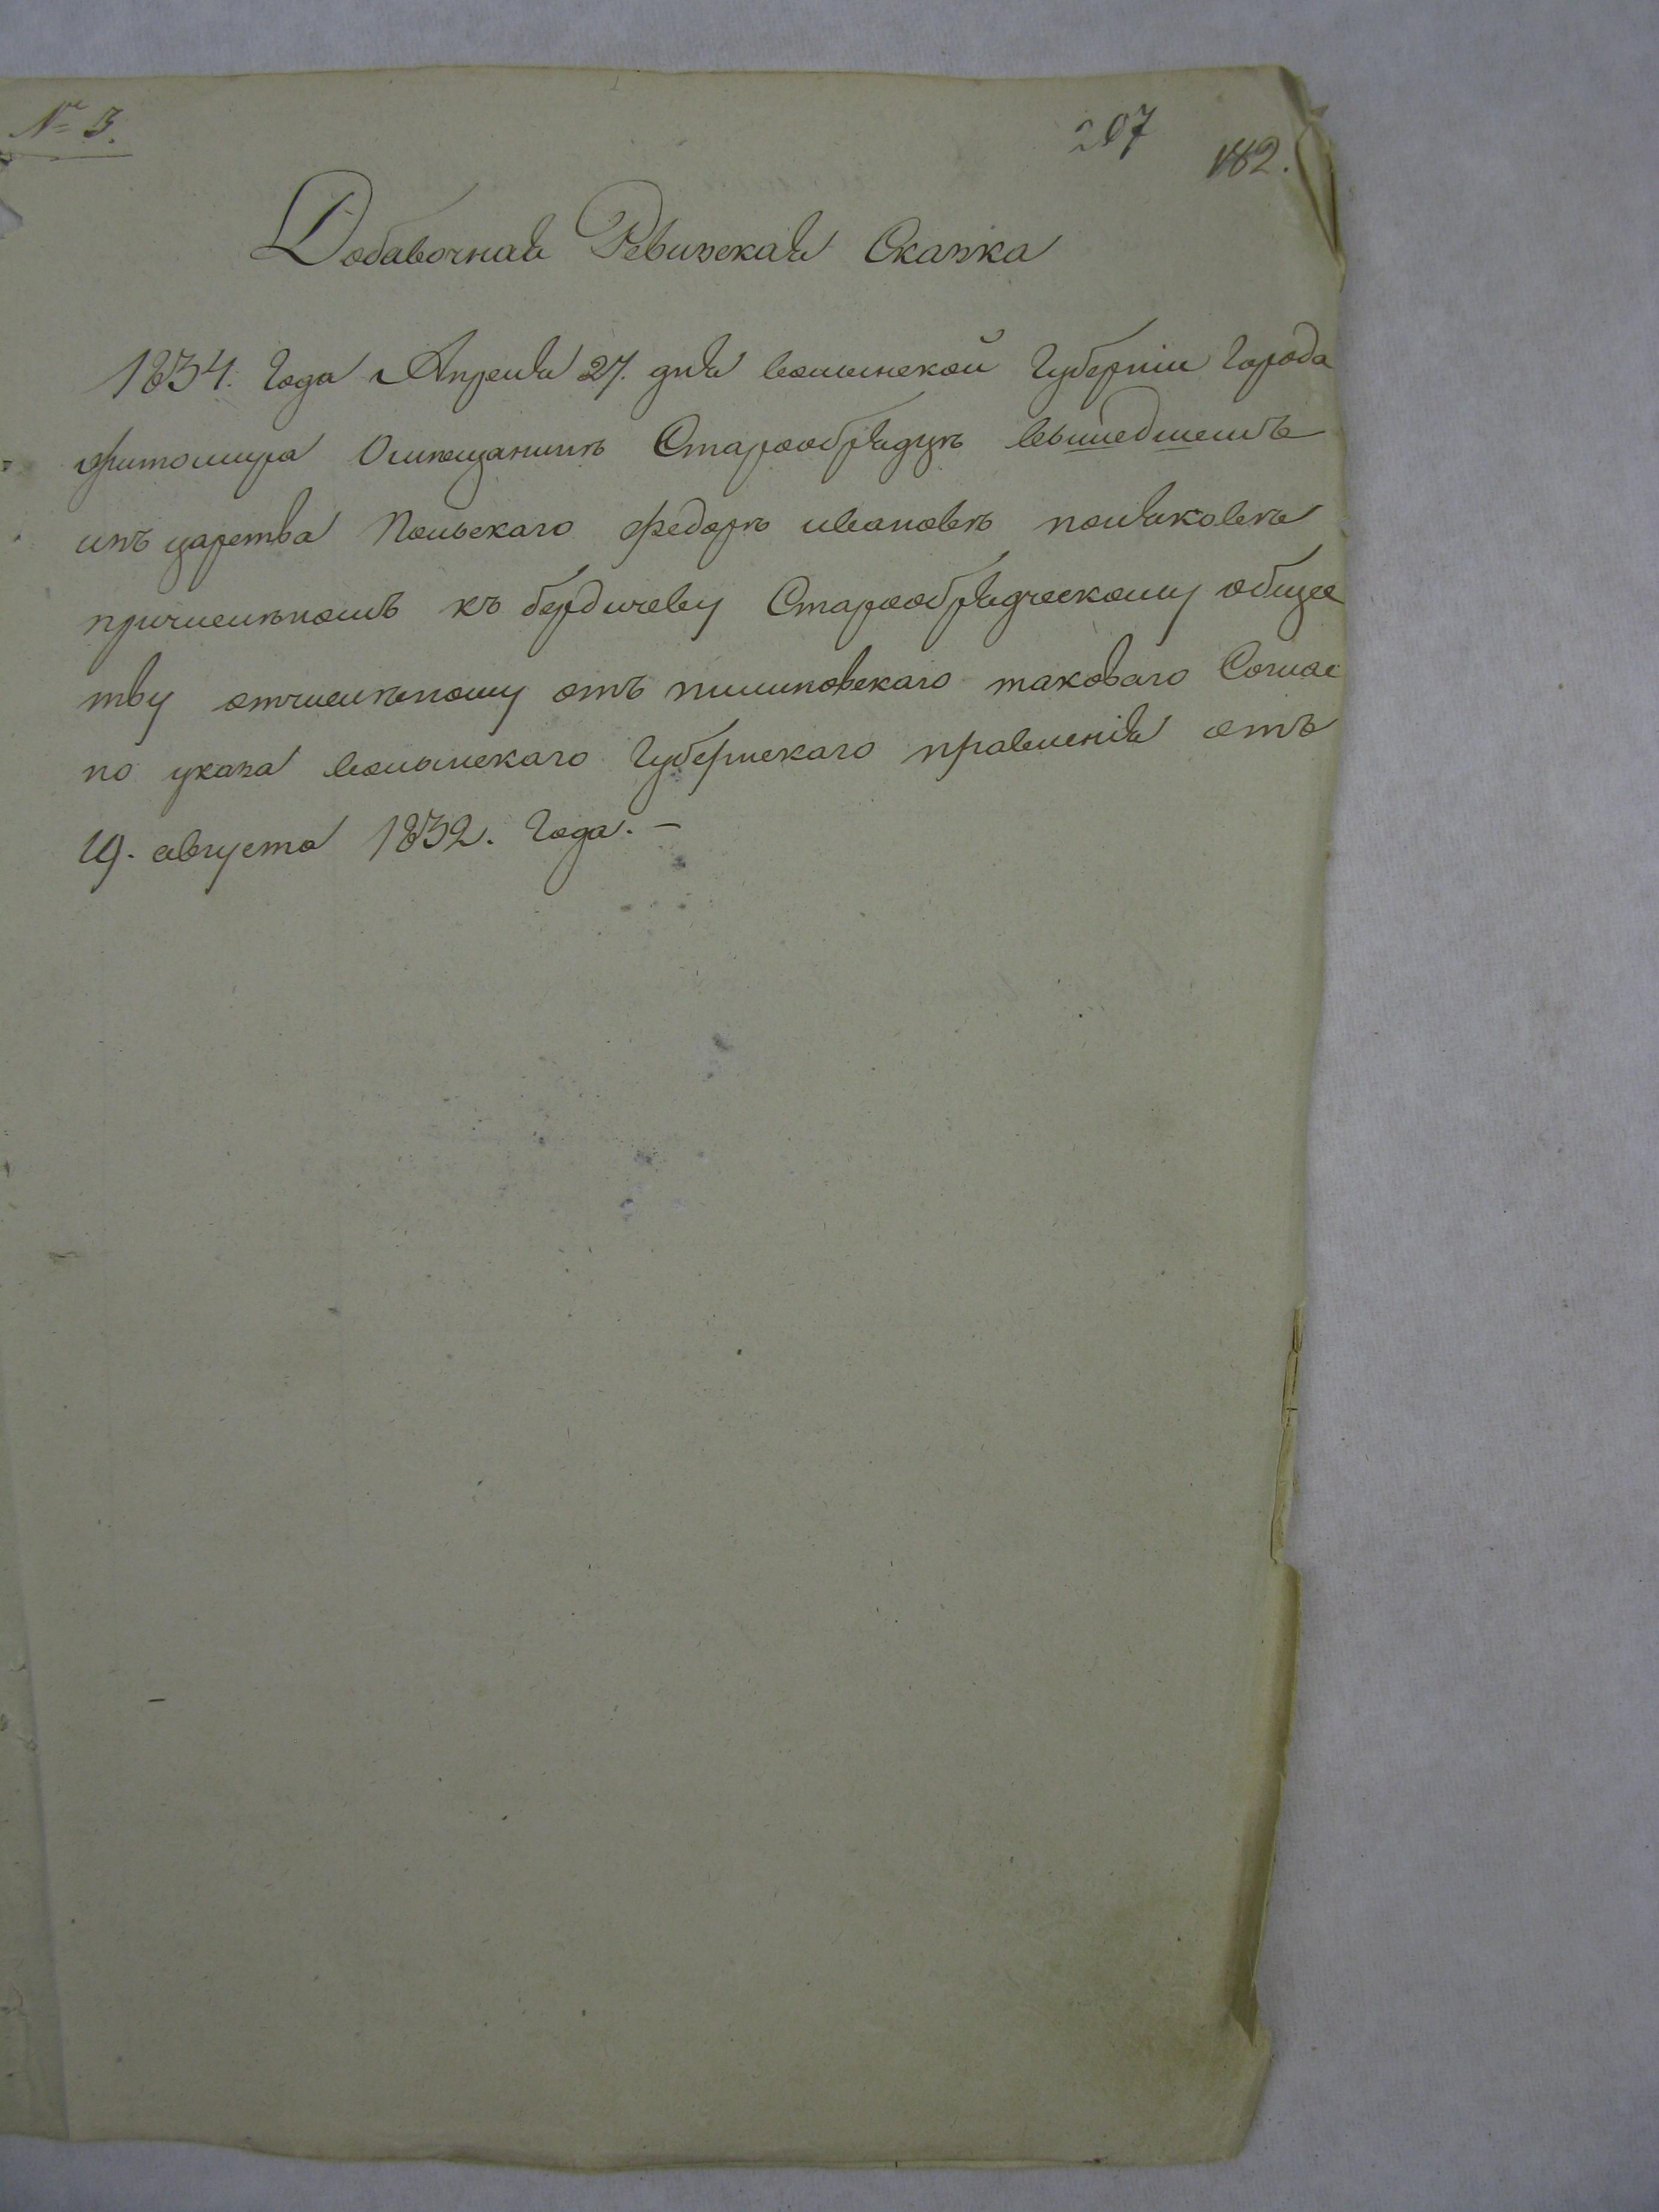 № 3.
207
182.
Добавочная Ревизская Сказка
1834. Года Апреля 27. дня волынской Губерніи Города
житомира О мещанинѣ Старообрядцѣ вышедшемъ
изъ царства Польскаго Федорѣ ивановѣ поляковѣ
причисленомъ къ бердичеву Старообрядческому общес
тву отчисленому отъ пилиповскаго таковаго Соглас
но указа волынскаго Губернскаго правленія отъ
19. августа 1832. Года. –